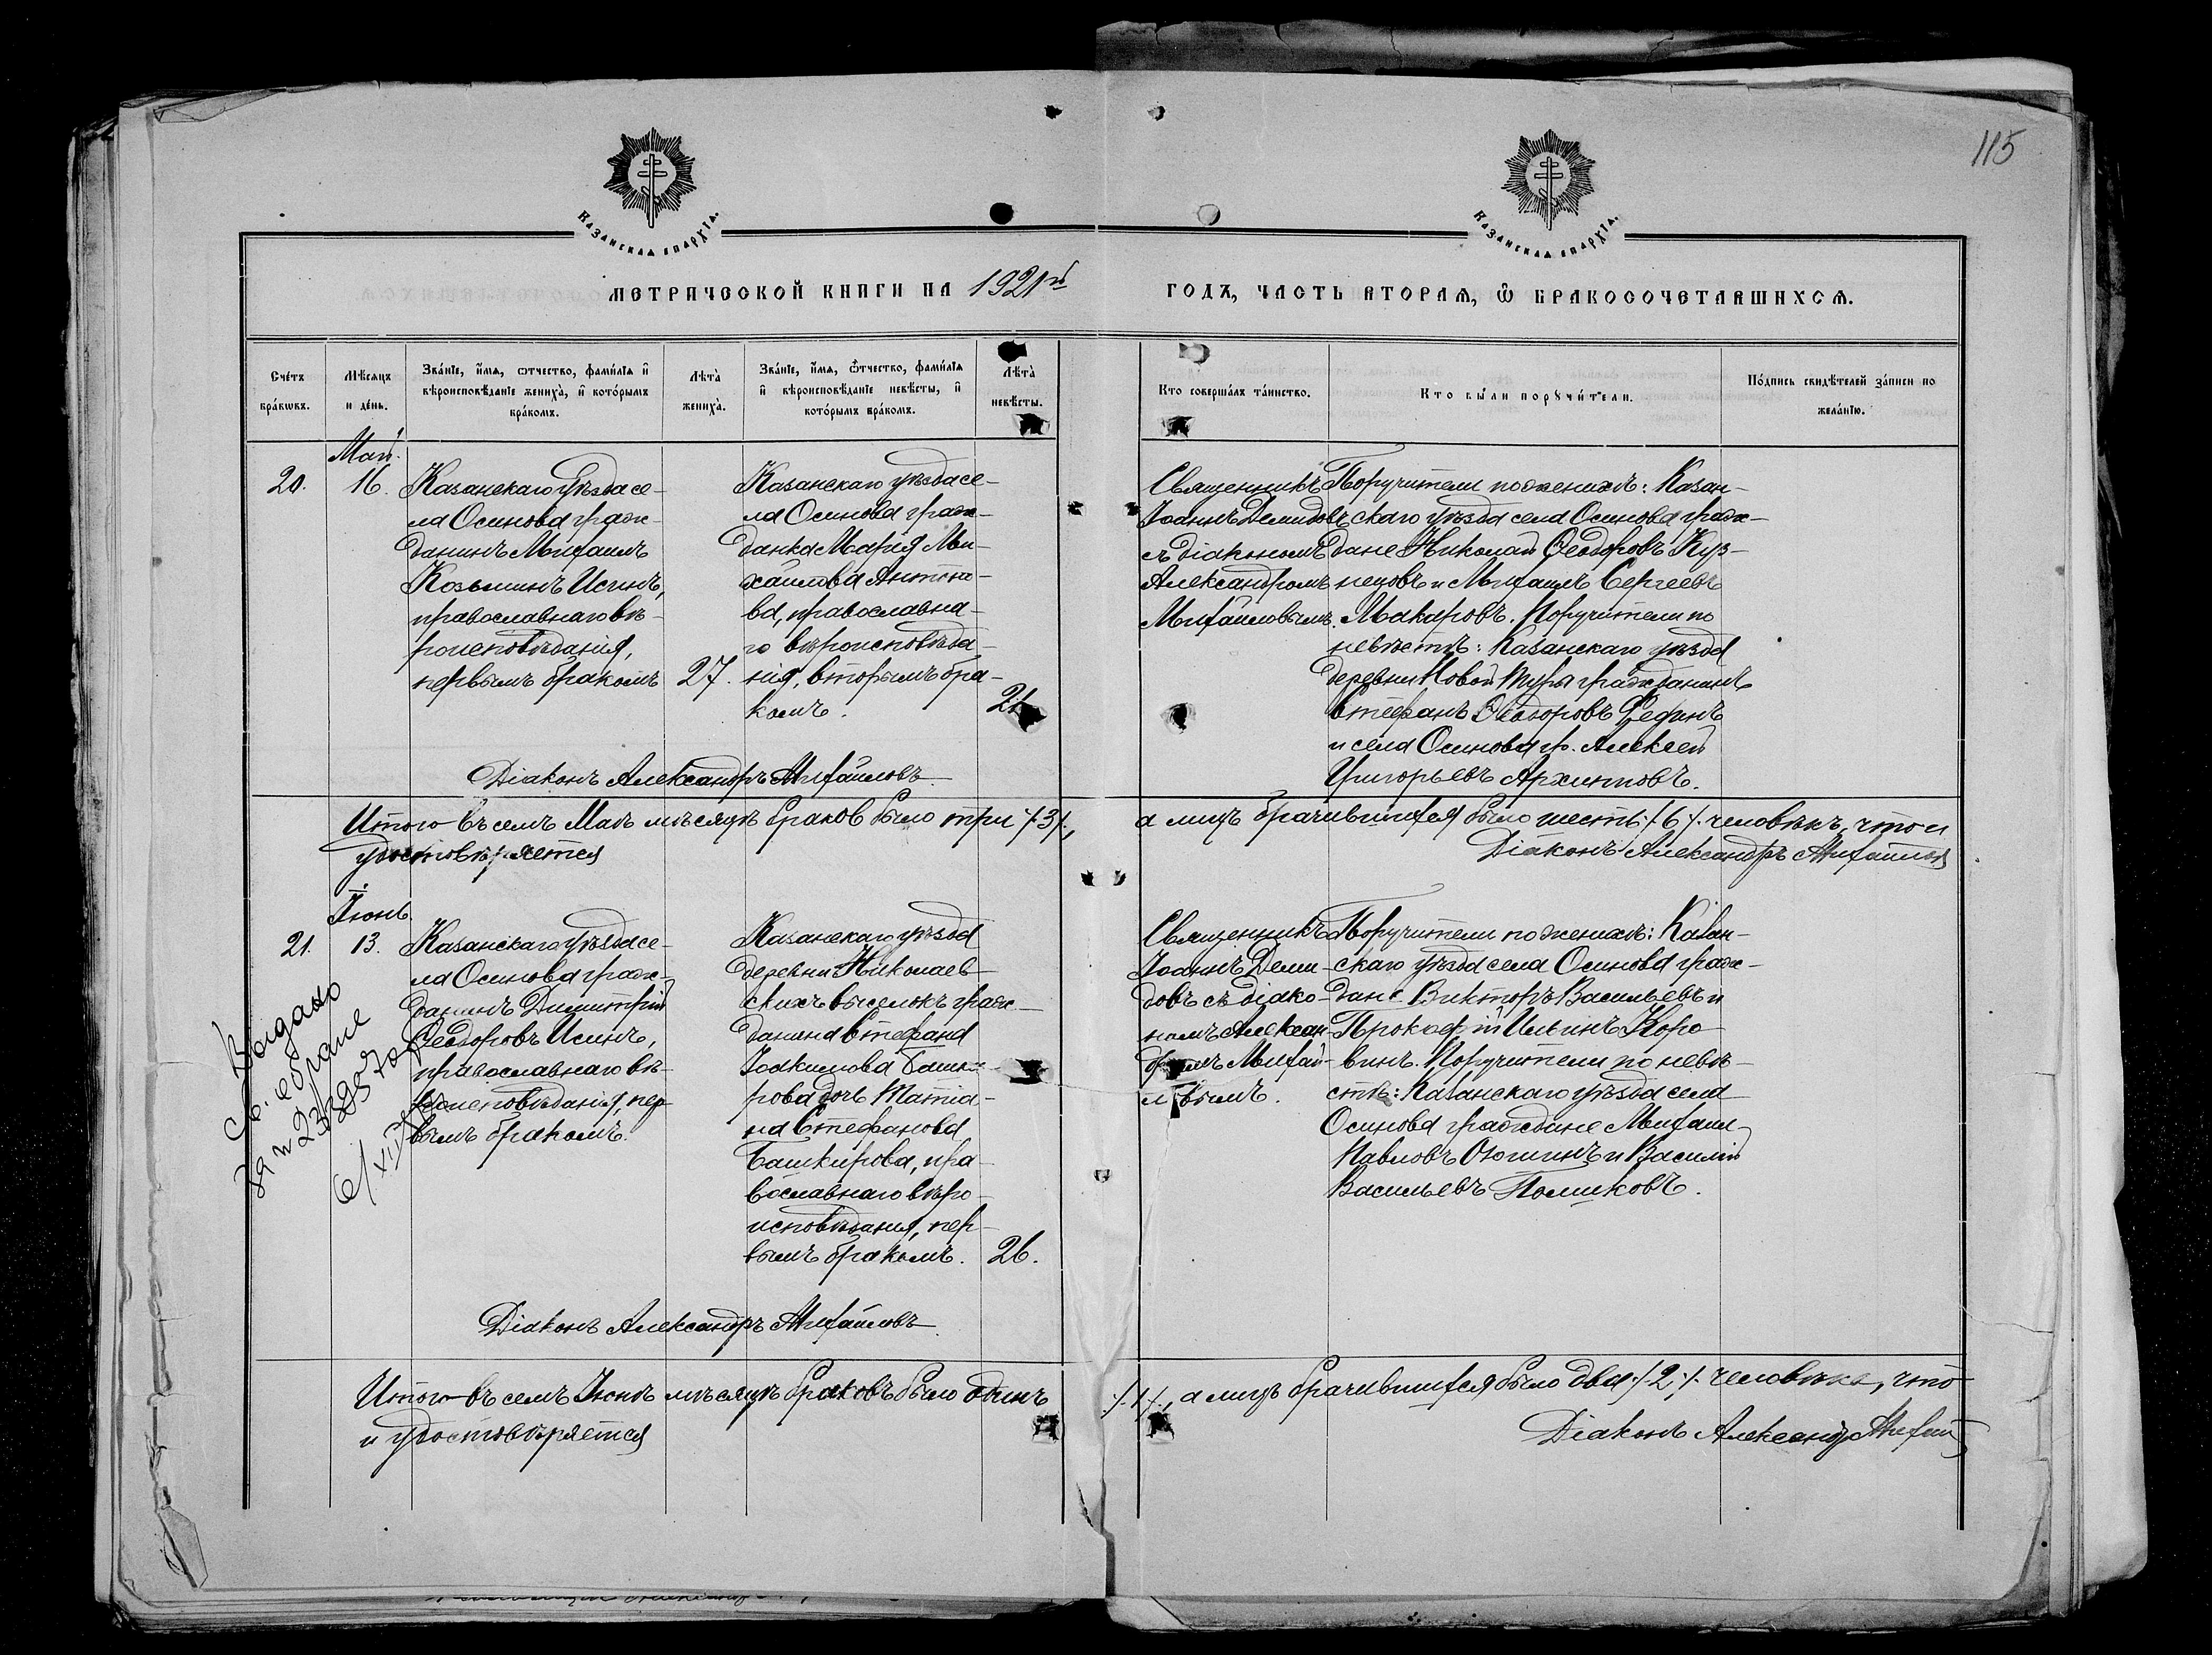 115
Казанская епархїа.
Казанская епархїа.
Метрической книги на 1921й
годъ, часть вторая, ѿ бракосочетавшихся.
Счетъ браковъ.
Мѣсяцъ и день.
Званїе, имя, отчество, фамилїя и вѣроисповѣданїе жениха, и которымъ бракомъ.
Лѣта жениха.
Званїе, имя, отчество, фамилїя и вѣроисповѣданїе невѣсты, и которымъ бракомъ.
Лѣта невѣсты.
Кто совершалъ таинство.
Кто были поручители.
Подпись свидѣтелей записи по желанїю.
Май.
20.
16.
Казанскаго уѣзда се-
ла Осинова граж-
данинъ Михаилъ
Козьминъ Исинъ,
православнаго вѣ-
роисповѣданія,
первымъ бракомъ
27.
Казанскаго уѣзда се-
ла Осинова граж-
данка Марія Ми-
хайлова Антоно-
ва, православна-
го вѣроисповѣда-
нія, вторымъ бра-
комъ.
21
Священникъ
Іоаннъ Демидовъ
съ діакономъ
Александромъ
Михайловымъ.
Поручители по женихѣ: Казан-
скаго уѣзда села Осинова граж-
дане Николай Ѳеодоровъ Куз-
нецовъ и Михаилъ Сергеевъ
Макаровъ. Поручители по
невѣстѣ: Казанскаго уѣзда
деревни Новой Туры гражданинъ
Стефанъ Ѳеодоровъ
и села Осинова гр. Алексей
Григорьевъ Архиповъ.
Діаконъ Александръ Михайловъ
Итого въ семъ Маѣ мѣсяцѣ браков было три /3/,
а лицъ брачившихся было шесть /6/ человѣкъ, что и
удостовѣряется
Діаконъ Александръ Михайловъ
Іюнь.
21.
13.
Казанскаго уѣзда се-
ла Осинова граж-
данинъ Димитрій
Ѳеодоровъ Исинъ,
православнаго вѣ-
роисповѣданія, пер-
вымъ бракомъ.
Казанскаго уѣзда
деревни Николаев-
скихъ выселокъ граж-
данина Стефана
Іоакимова Башки-
рова дочь Татіа-
на Стефанова
Башкирова, пра-
вославнаго вѣро-
исповѣданія, пер-
вымъ бракомъ.
26.
Священникъ
Іоаннъ Деми-
довъ съ діако-
номъ Алексан-
дромъ Михай-
ловымъ.
Поручители по женихѣ: Казан-
скаго уѣзда села Осинова граж-
дане Викторъ Васильевъ и
Прокофій Ильинъ Коро-
винъ. Поручители по невѣ-
стѣ: Казанскаго уѣзда села
Осинова граждане Михаил
Павловъ и Василій
Васильевъ
Выдано
св. о браке
за №
Діаконъ Александръ Михайловъ
Итого въ семъ Іюнѣ мѣсяцѣ браковъ было одинъ
/1/, а лицъ брачившихся было два /2/ человѣка, что
и удостовѣряется
Діаконъ Александръ